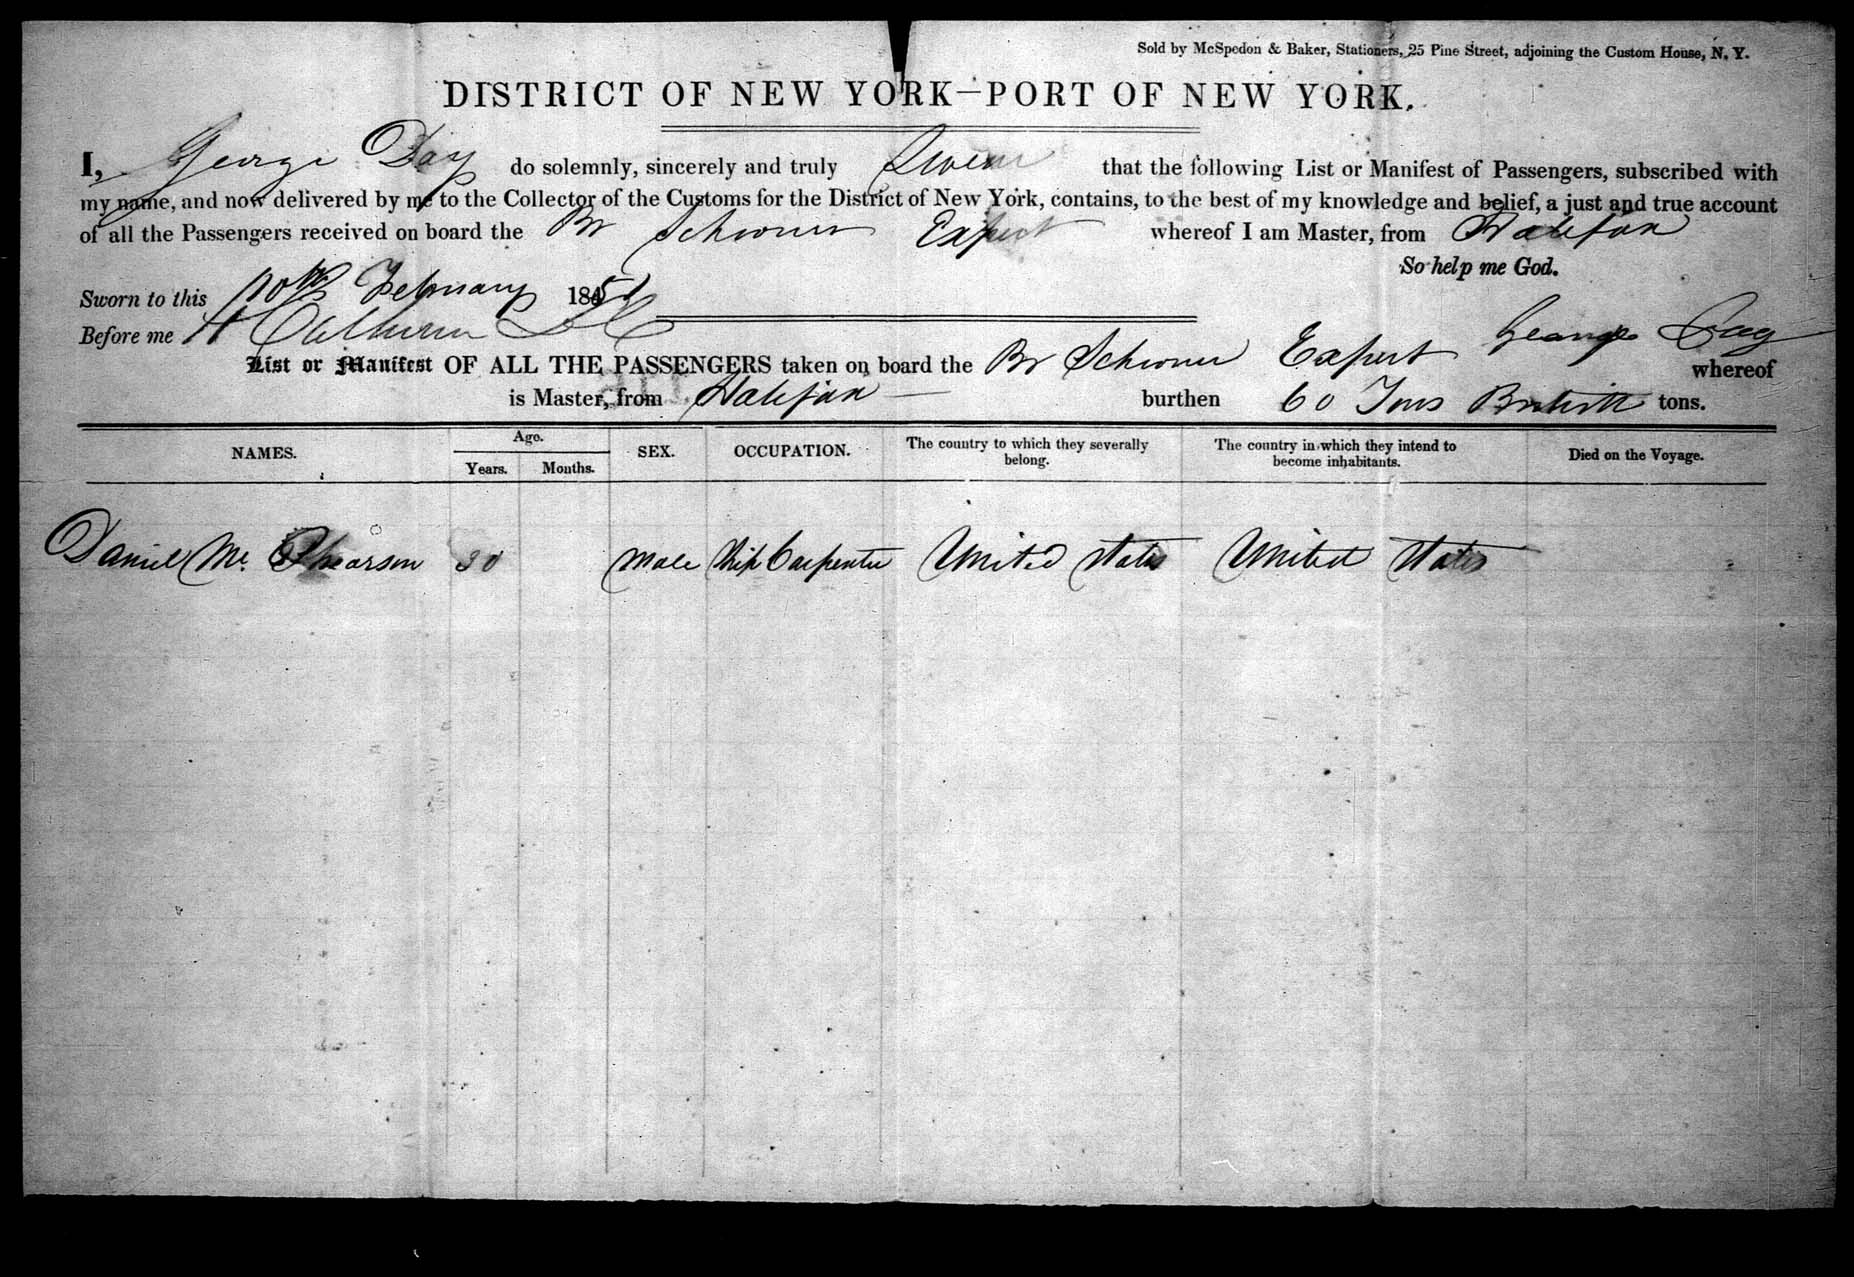 Sold by McSpedon & Baker, Stationers, 25 Pine Street, adjoining the Custom House, N. Y.
DISTRICT OF NEW YORK—PORT OF NEW YORK.
I, George Day do solemnly, sincerely and truly Swear that the following List or Manifest of Passengers, subscribed with
my name, and now delivered by me to the Collector of the Customs for the District of New York, contains, to the best of my knowledge and belief, a just and true account
of all the Passengers received on board the Br Schooner Expert whereof I am Master, from Halifax
So help me God.
Sworn to this February 185
Before me
George Day
List or Manifest OF ALL THE PASSENGERS taken on board the Br Schooner Expert whereof
is Master, from Halifax burthen 60 Tons British tons.
NAMES. Age. SEX. OCCUPATION. The country to which they severally belong. The country in which they intend to become inhabitants. Died on the Voyage.
Years. Months.
Daniel Mc Phearson 30 Male Ship Carpenter United States United States